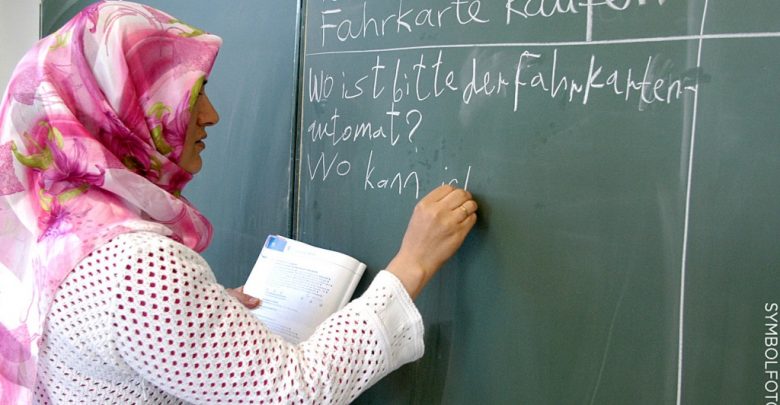 Fahrkarte kaufen
Wo ist bitte der Fahrkarten-
automat?
Wo kann
SYMBOLFOTO